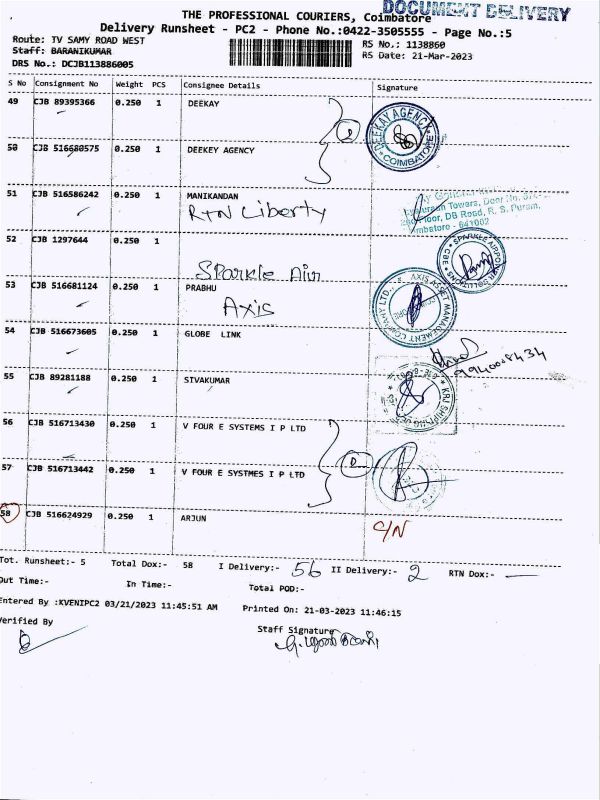 DOCUMENT DELIVERY
THE PROFESSIONAL COURIERS, Coimbatore
Delivery Runsheet - PC2 - Phone No.:0422-3505555 - Page No.:5
Route: TV SAMY ROAD WEST
RS No.: 1138860
Staff: BARANIKUMAR
RS Date: 21-Mar-2023
DRS No.: DCJB113886005
S No Consignment No Weight PCS Consignee Details Signature
49 CJB 89395366 0.250 1 DEEKAY
DEEKAY AGENCY COIMBATORE
50 CJB 516680575 0.250 1 DEEKEY AGENCY
51 CJB 516586242 0.250 1 MANIKANDAN
RTN Liberty
Towers, Door No.
Floor, DB Road, R. S. Puram,
52 CJB 1297644 0.250 1
Sparkle Air
53 CJB 516681124 0.250 1 PRABHU
Axis
AXIS ASSET MANAGEMENT COMPANY LTD.
54 CJB 516673605 0.250 1 GLOBE LINK
55 CJB 89281188 0.250 1 SIVAKUMAR
56 CJB 516713430 0.250 1 V FOUR E SYSTEMS I P LTD
57 CJB 516713442 0.250 1 V FOUR E SYSTMES I P LTD
58 CJB 516624929 0.250 1 ARJUN
C/N
Tot. Runsheet:- 5 Total Dox:- 58 I Delivery:- 56 II Delivery:- 2 RTN Dox:- —
Out Time:- In Time:- Total POD:-
Entered By :KVENIPC2 03/21/2023 11:45:51 AM Printed On: 21-03-2023 11:46:15
Verified By
Staff Signature